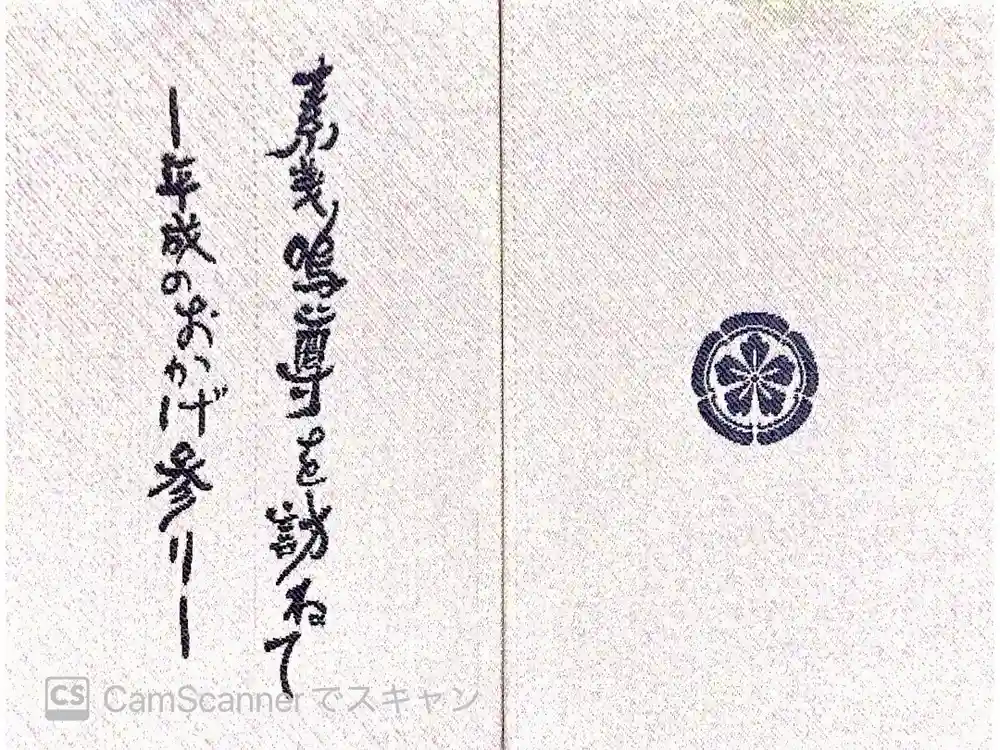 素戔嗚尊を訪ねて
―平成のおかげ参り―
CS CamScanner でスキャン